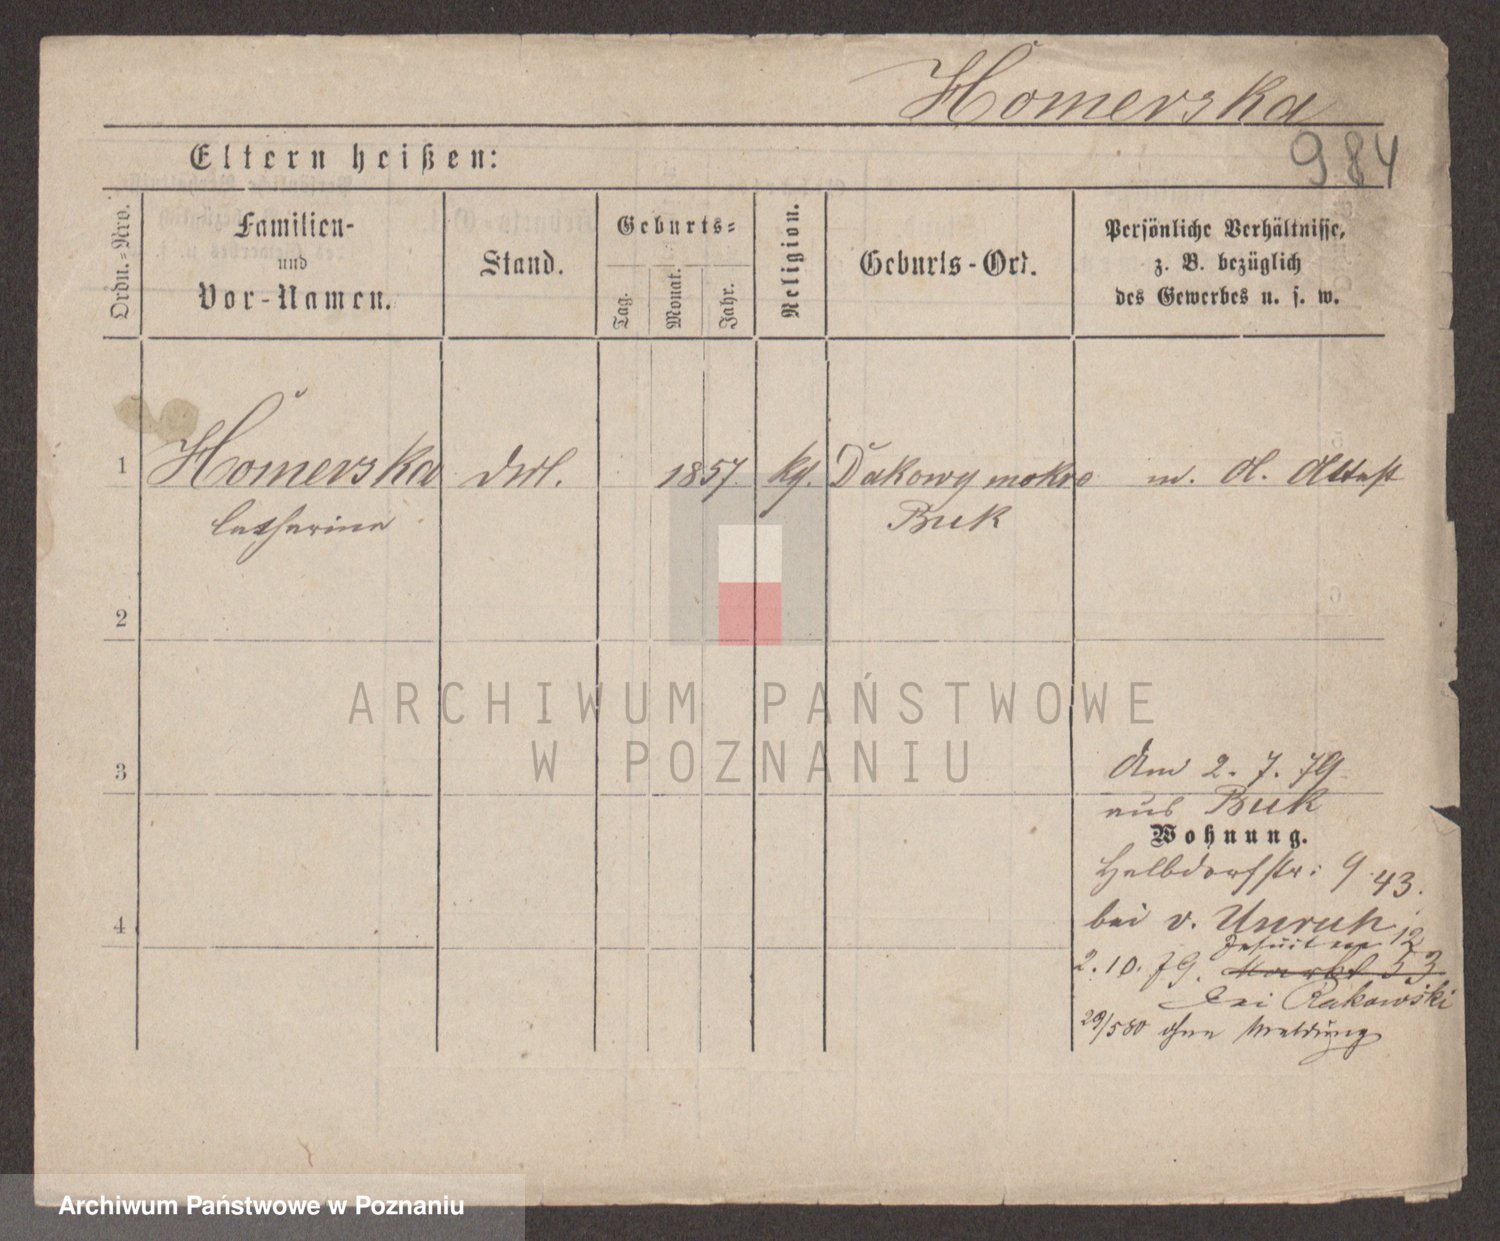 Homerska
984
Eltern heißen:
Ordn.-Nro.
Familien-
und
Vor-Namen.
Stand.
Geburts-
Tag.
Monat.
Jahr.
Religion.
Geburts-Ort.
Persönliche Verhältnisse,
z. B. bezüglich
des Gewerbes u. s. w.
1 Homerska 1857. kg. Dakowy mokre m. d. Attest
Catharina Buk
2
3
Am 2. 7. 79
aus Buk
Wohnung.
Halbdorfstr: 9 43.
4
bei v. Unruh
Jesuiten 12
2. 10. 79. Markt 53
bei Rakowski
29/5 80 ohne Meldung
ARCHIWUM PAŃSTWOWE
W POZNANIU
Archiwum Państwowe w Poznaniu